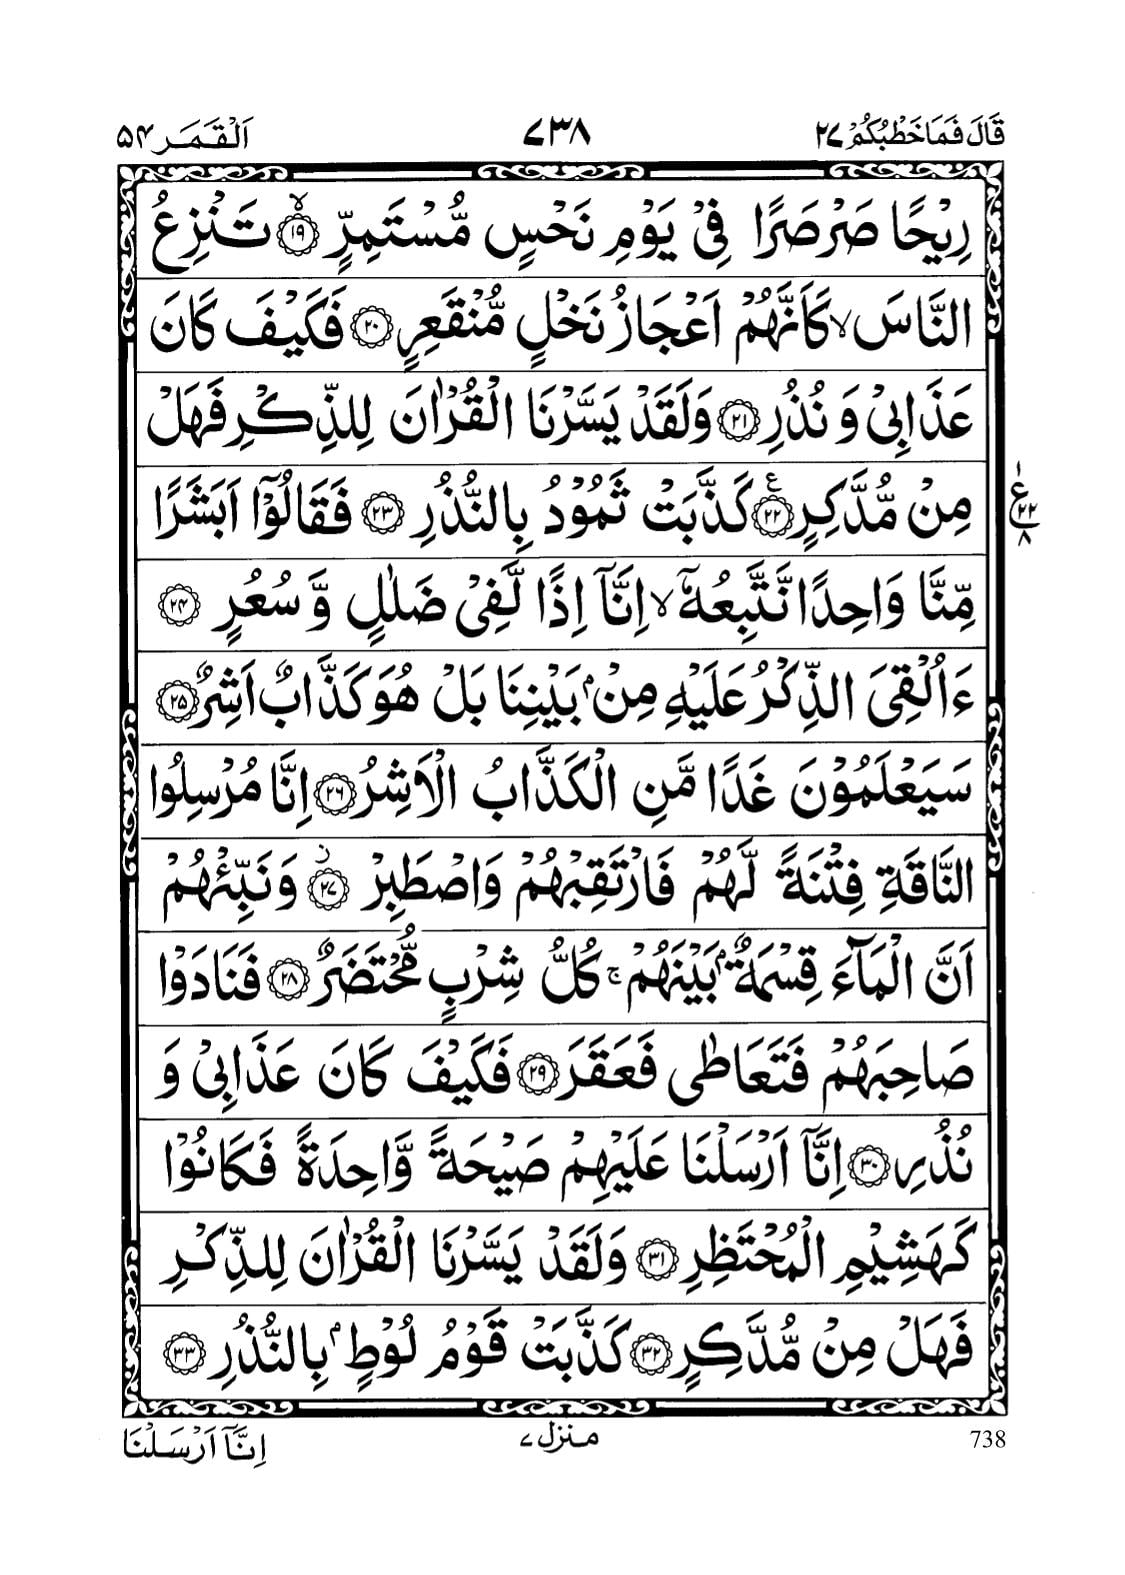 قَالَ فَمَا خَطْبُكُمْ ٢٧ ٧٣٨ اَلْقَمَر ٥٤
رِيْحًا صَرْصَرًا فِيْ يَوْمِ نَحْسٍ مُّسْتَمِرٍّ ۙ‏﴿١٩﴾ تَنْزِعُ
النَّاسَ ۙ كَاَنَّهُمْ اَعْجَازُ نَخْلٍ مُّنْقَعِرٍ ﴿٢٠﴾ فَكَيْفَ كَانَ
عَذَابِيْ وَ نُذُرِ ﴿٢١﴾ وَلَقَدْ يَسَّرْنَا الْقُرْاٰنَ لِلذِّكْرِ فَهَلْ
مِنْ مُّدَّكِرٍ ﴿٢٢﴾ ع كَذَّبَتْ ثَمُوْدُ بِالنُّذُرِ ﴿٢٣﴾ فَقَالُوْٓا اَبَشَرًا
ع ١ ٢٢ ٨
مِّنَّا وَاحِدًا نَّتَّبِعُهٗٓ ۙ اِنَّآ اِذًا لَّفِيْ ضَلٰلٍ وَّ سُعُرٍ ﴿٢٤﴾
ءَاُلْقِيَ الذِّكْرُ عَلَيْهِ مِنْۢ بَيْنِنَا بَلْ هُوَ كَذَّابٌ اَشِرٌ ﴿٢٥﴾
سَيَعْلَمُوْنَ غَدًا مَّنِ الْكَذَّابُ الْاَشِرُ ﴿٢٦﴾ اِنَّا مُرْسِلُوا
النَّاقَةِ فِتْنَةً لَّهُمْ فَارْتَقِبْهُمْ وَاصْطَبِرْ ز ﴿٢٧﴾ وَنَبِّئْهُمْ
اَنَّ الْمَآءَ قِسْمَةٌۢ بَيْنَهُمْ ۚ كُلُّ شِرْبٍ مُّحْتَضَرٌ ﴿٢٨﴾ فَنَادَوْا
صَاحِبَهُمْ فَتَعَاطٰى فَعَقَرَ ﴿٢٩﴾ فَكَيْفَ كَانَ عَذَابِيْ وَ
نُذُرِ ﴿٣٠﴾ اِنَّآ اَرْسَلْنَا عَلَيْهِمْ صَيْحَةً وَّاحِدَةً فَكَانُوْا
كَهَشِيْمِ الْمُحْتَظِرِ ﴿٣١﴾ وَلَقَدْ يَسَّرْنَا الْقُرْاٰنَ لِلذِّكْرِ
فَهَلْ مِنْ مُّدَّكِرٍ ﴿٣٢﴾ كَذَّبَتْ قَوْمُ لُوْطٍۭ بِالنُّذُرِ ﴿٣٣﴾
738 منزل ٧ اِنَّآ اَرْسَلْنَا